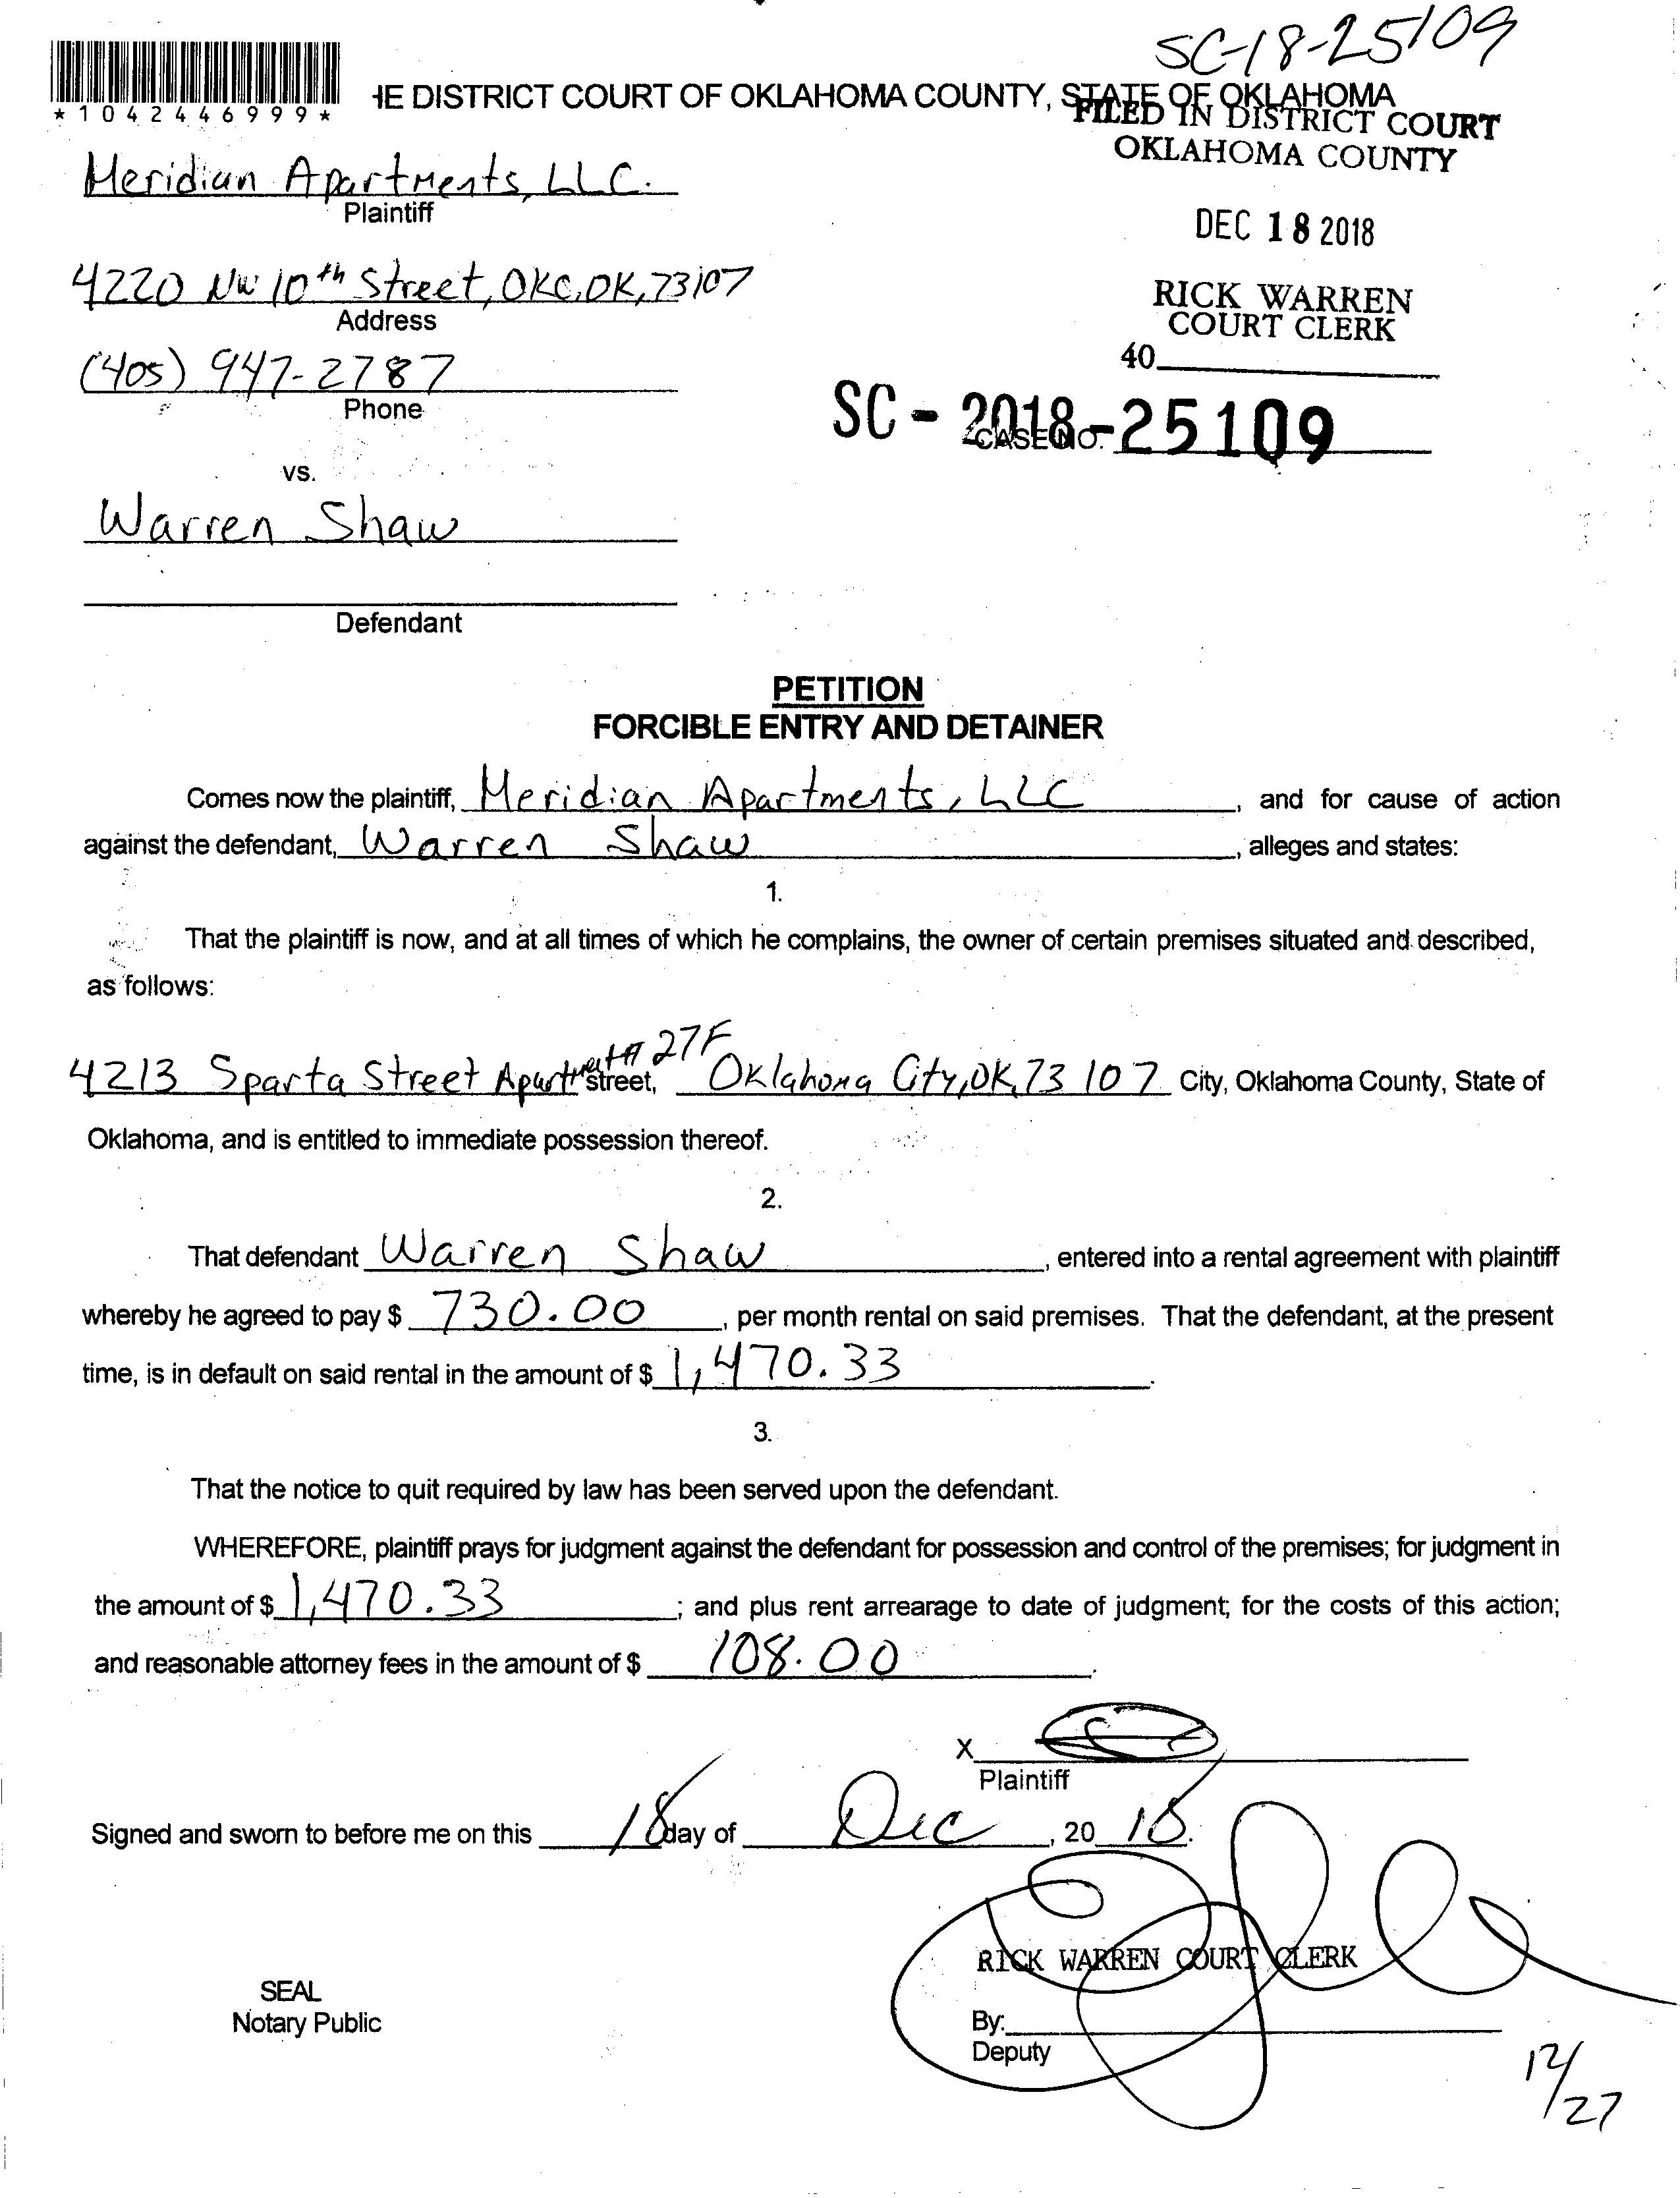 SC-18-25109
*1042446999*
HE DISTRICT COURT OF OKLAHOMA COUNTY, STATE OF OKLAHOMA
FILED IN DISTRICT COURT
OKLAHOMA COUNTY
Meridian Apartments, LLC.
Plaintiff
DEC 18 2018
4220 NW 10th Street, OKC, OK, 73107
Address
RICK WARREN
COURT CLERK
40
(405) 947-2787
Phone
SC - 2018-25109
CASE NO.
vs.
Warren Shaw
Defendant
PETITION
FORCIBLE ENTRY AND DETAINER
Comes now the plaintiff, Meridian Apartments, LLC, and for cause of action
against the defendant, Warren Shaw, alleges and states:
1.
That the plaintiff is now, and at all times of which he complains, the owner of certain premises situated and described,
as follows:
4213 Sparta Street Apartment# 27F street, Oklahoma City, OK, 73107 City, Oklahoma County, State of
Oklahoma, and is entitled to immediate possession thereof.
2.
That defendant Warren Shaw, entered into a rental agreement with plaintiff
whereby he agreed to pay $ 730.00, per month rental on said premises. That the defendant, at the present
time, is in default on said rental in the amount of $ 1,470.33.
3.
That the notice to quit required by law has been served upon the defendant.
WHEREFORE, plaintiff prays for judgment against the defendant for possession and control of the premises; for judgment in
the amount of $ 1,470.33; and plus rent arrearage to date of judgment; for the costs of this action;
and reasonable attorney fees in the amount of $ 108.00.
X
Plaintiff
Signed and sworn to before me on this 18 day of Dec, 2018.
RICK WARREN COURT CLERK
SEAL
Notary Public
By:
Deputy
12/27